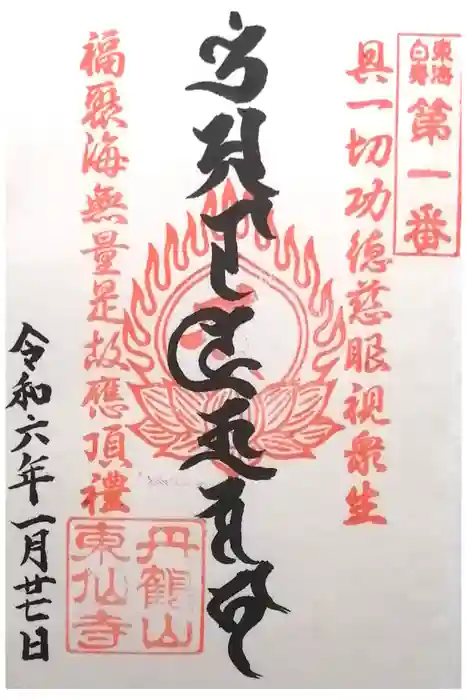 東海
白寿
第一番
具一切功徳慈眼視衆生
福聚海無量是故應頂禮
令和六年一月廿七日
丹鶴山
東仙寺